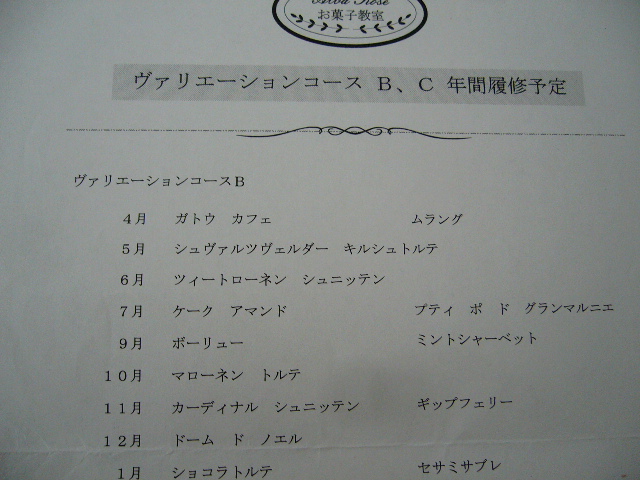 Alba Rose
お菓子教室
ヴァリエーションコース B、C 年間履修予定
ヴァリエーションコースB
4月 ガトウ カフェ ムラング
5月 シュヴァルツヴェルダー キルシュトルテ
6月 ツィートローネン シュニッテン
7月 ケーク アマンド プティ ポ ド グランマルニエ
9月 ボーリュー ミントシャーベット
10月 マローネン トルテ
11月 カーディナル シュニッテン ギップフェリー
12月 ドーム ド ノエル
1月 ショコラトルテ セサミサブレ